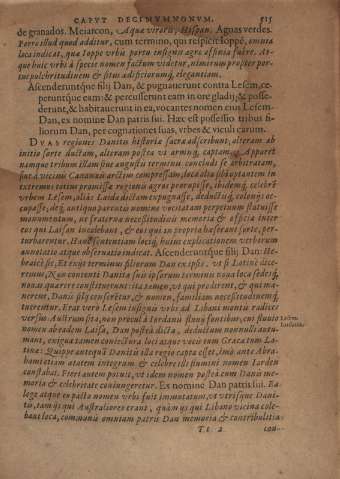 CAPVT DECIMVMNONVM. 515
de granados. Meiarcon, Aqua viroris, Hispan. Aguas verdes.
Porro illud quod additur, cum termino, qui respicit Ioppé, omnia
loca indicat, quae Ioppe urbis portu insignis agro affinia fuere. At-
que huic urbi à specie nomen factum videtur, nimirum propter por-
tus pulchritudinem & situm adspiciorumq; elegantiam.
Ascenderuntq́ue filij Dan, & pugnauerunt contra Lesem, ce-
peruntq́ue eam: & percusserunt eam in ore gladij, & posse-
derunt, & habitauerunt in ea, vocantes nomen eius Lesem-
Dan, ex nomine Dan patris sui. Haec est possessio tribus fi-
liorum Dan, per cognationes suas, vrbes & viculi earum.
DVAS regiones Danitis historia sacra adscribunt, alteram ab
initio sorte ductam, alteram postea vi armisq́; captam. Apparet
namque tribum illam
tum vicinis Cananaeis arctim compressam,
extremos totius promissa regionis agros prorupisse, ibidemq́; celebrē
vrbem Lesem, aliàs Laisa dictam expugnasse, deductisq́; colonijs oc-
cupasse, deq́; antiquo parentis nomine vocitatam perpetuum statuisse
monumentum, ne fraterna necessitudinis memoria & officia inter
eos qui Laisan incolebant, & eos qui in propria haeserant sorte, per-
turbarentur. Hanc sententiam locis huius explicationem verborum
annotatio atque obseruatio indicat. Ascenderuntq́ue filij Dan: He-
braicè est, Et exijt terminus filiorum Dan ex ipsis. vt si Latinè dice-
retur, Non contenti Danitae suis ipsorum terminis
nouas quaerere constituerunt:
nerent, Danis filij censeretur, & nomen, familiam necessitudinemq́;
tuerentur. Erat verò Lesem insignis vrbs ad Libani montis radices
versus Austrum sita, non procul à Iordanis
nomen abradem Laisa, Dan postea dicta, deductum nonnulli autu-
mant, exigua tamen coniectura loci atque vocis tum Graeca tum La-
tina: Quippe antequam Danitis illa regio capta esset, imò ante Abra-
hami etiam aetatem integrum & celebre illi flumini nomen Iarden
constabat. Fieri autem potuit, vt idem nomen postea cum Danis me-
moria & celebritate coniungeretur. Ex nomine Dan patris sui. Ea
lege atque ex pacto nomen vrbi fuit immutatum, vt vtrisque Dani-
tis, tam ijs qui Australiores erant, quàm ijs qui Libano vicina cole-
bant loca, communis omnium patris Dan memoria & contributia-
Tt 2 cou-